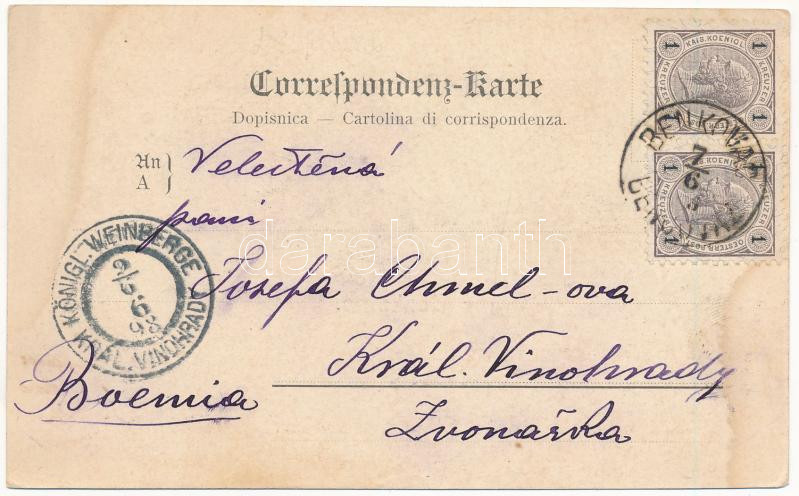 Correspondenz-Karte
Dopisnica — Cartolina di correspondenza.
An
A
Velectěná
paní
Josefa Chmel-ova
Král. Vinohrady
Zvonařka
Boemia
KÖNIGL. WEINBERGE
9/6
98
KRÁL. VINOHRADY
BENKOVAC
7/6
KAIS. KOENIGL.
1 KREUZER 1
KAIS. KOENIGL.
1 KREUZER 1
OESTERR. POST
darabanth